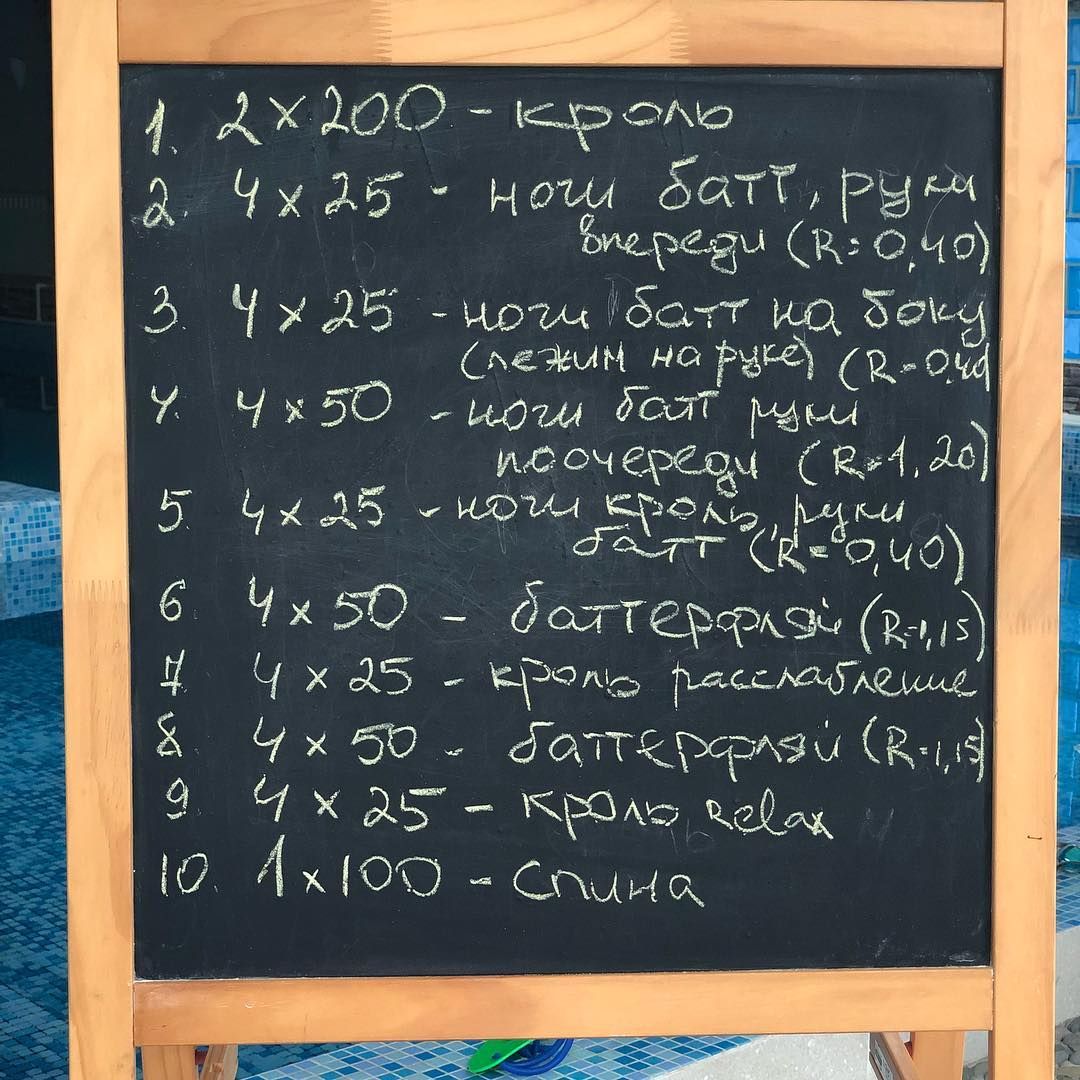 1. 2 x 200 - кроль
2. 4 x 25 - ноги батт, руки
впереди (R=0,40)
3. 4 x 25 - ноги батт на боку
(лежим на руке) (R=0,40
4. 4 x 50 - ноги батт руки
поочереди (R=1,20)
5. 4 x 25 - ноги кроль, руки
батт (R=0,40)
6 4 x 50 - баттерфляй (R=1,15)
7. 4 x 25 - кроль расслабление
8 4 x 50 - баттерфляй (R=1,15)
9. 4 x 25 - кроль Relax
10. 1 x 100 - спина